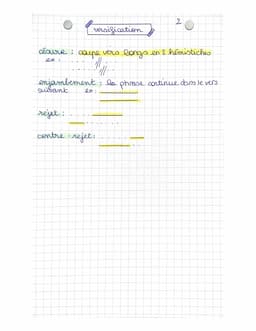 2
versification
césure : coupe vers longs en 2 hémistiches
ex : . . . . . . // . . . . . .
enjambement : la phrase continue dans le vers
suivant ex :
rejet :
contre-rejet :